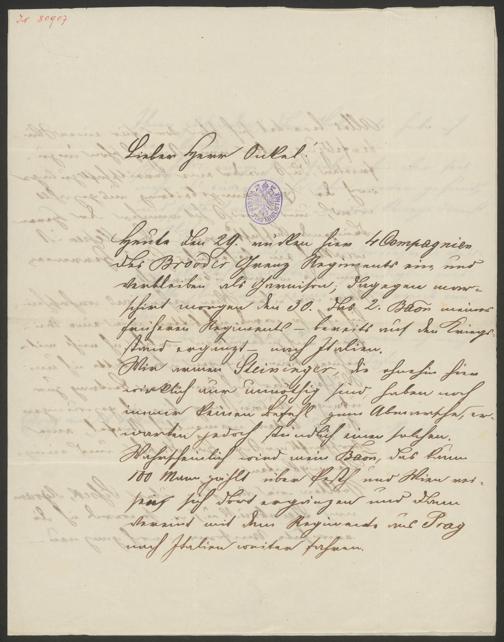 IN 80907
Lieber Herr Onkel!
Heute den 29. rücken hier 4 Compagnien
des Brooder Grenz Regiments ein und
verbleiben als Garnison, dagegen mar-
schirt morgen den 30. das 2. Baon meines
früheren Regiments – bereits auf den Kriegs-
stand ergänzt – nach Italien.
Wir armen Steininger, die ohnehin hier
wirklich nur unnöthig sind haben noch
immer keinen Befehl zum Abmarsche, er-
warten jedoch stündlich einen solchen.
Wahrscheinlich wird mein Baon, das kaum
100 Mann zählt über Pesth und Wien
sich dort ergänzen und dann
vereint mit dem Regimente aus Prag
nach Italien weiter fahren.